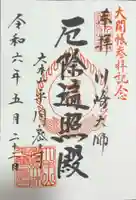 大開帳参拝記念
奉拝
川崎大師
厄除遍照殿
大本山川崎平間寺
令和六年五月二十三日